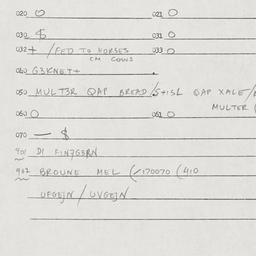 020 O 021 O
030 $ 031 O
032 + /FED TO HORSES 033 O
EM COWS
040 G3KNET+
050 MULT3R QAP BREAD/S+ISL QAP XALE/
MULTER (
060 O 061 O
070 — $
901 DI FIN7G3RN
902 BROUNE MEL (/170070 (410
UFGEJN / UVGEJN